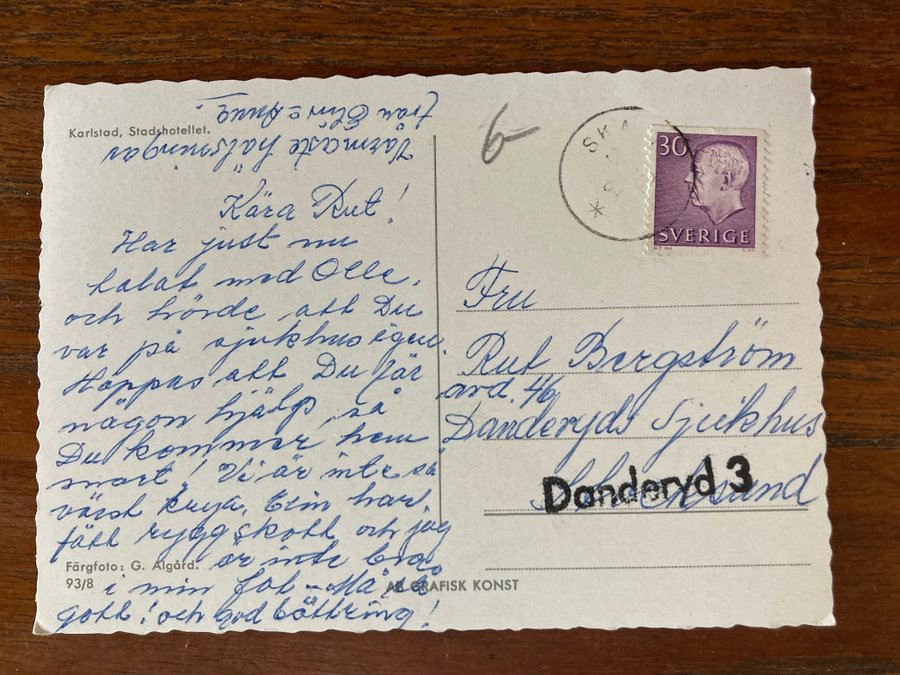 Karlstad, Stadshotellet.
Värmaste hälsningar
från Elin = Anna
Kära Rut!
Har just nu
talat med Olle,
och hörde att Du
var på sjukhus igen.
Hoppas att Du får
någon hjälp, så
Du kommer hem
snart! Vi är inte så
värst krya. Elin har
fått ryggskott och jag
är inte bra
i min fot - Må så
gott! och god bättring!
Färgfoto: G. Algård.
93/8
AB GRAFISK KONST
6-
SKA
30
SVERIGE
Fru
Rut Bergström
avd. 46
Danderyds Sjukhus
Danderyd 3